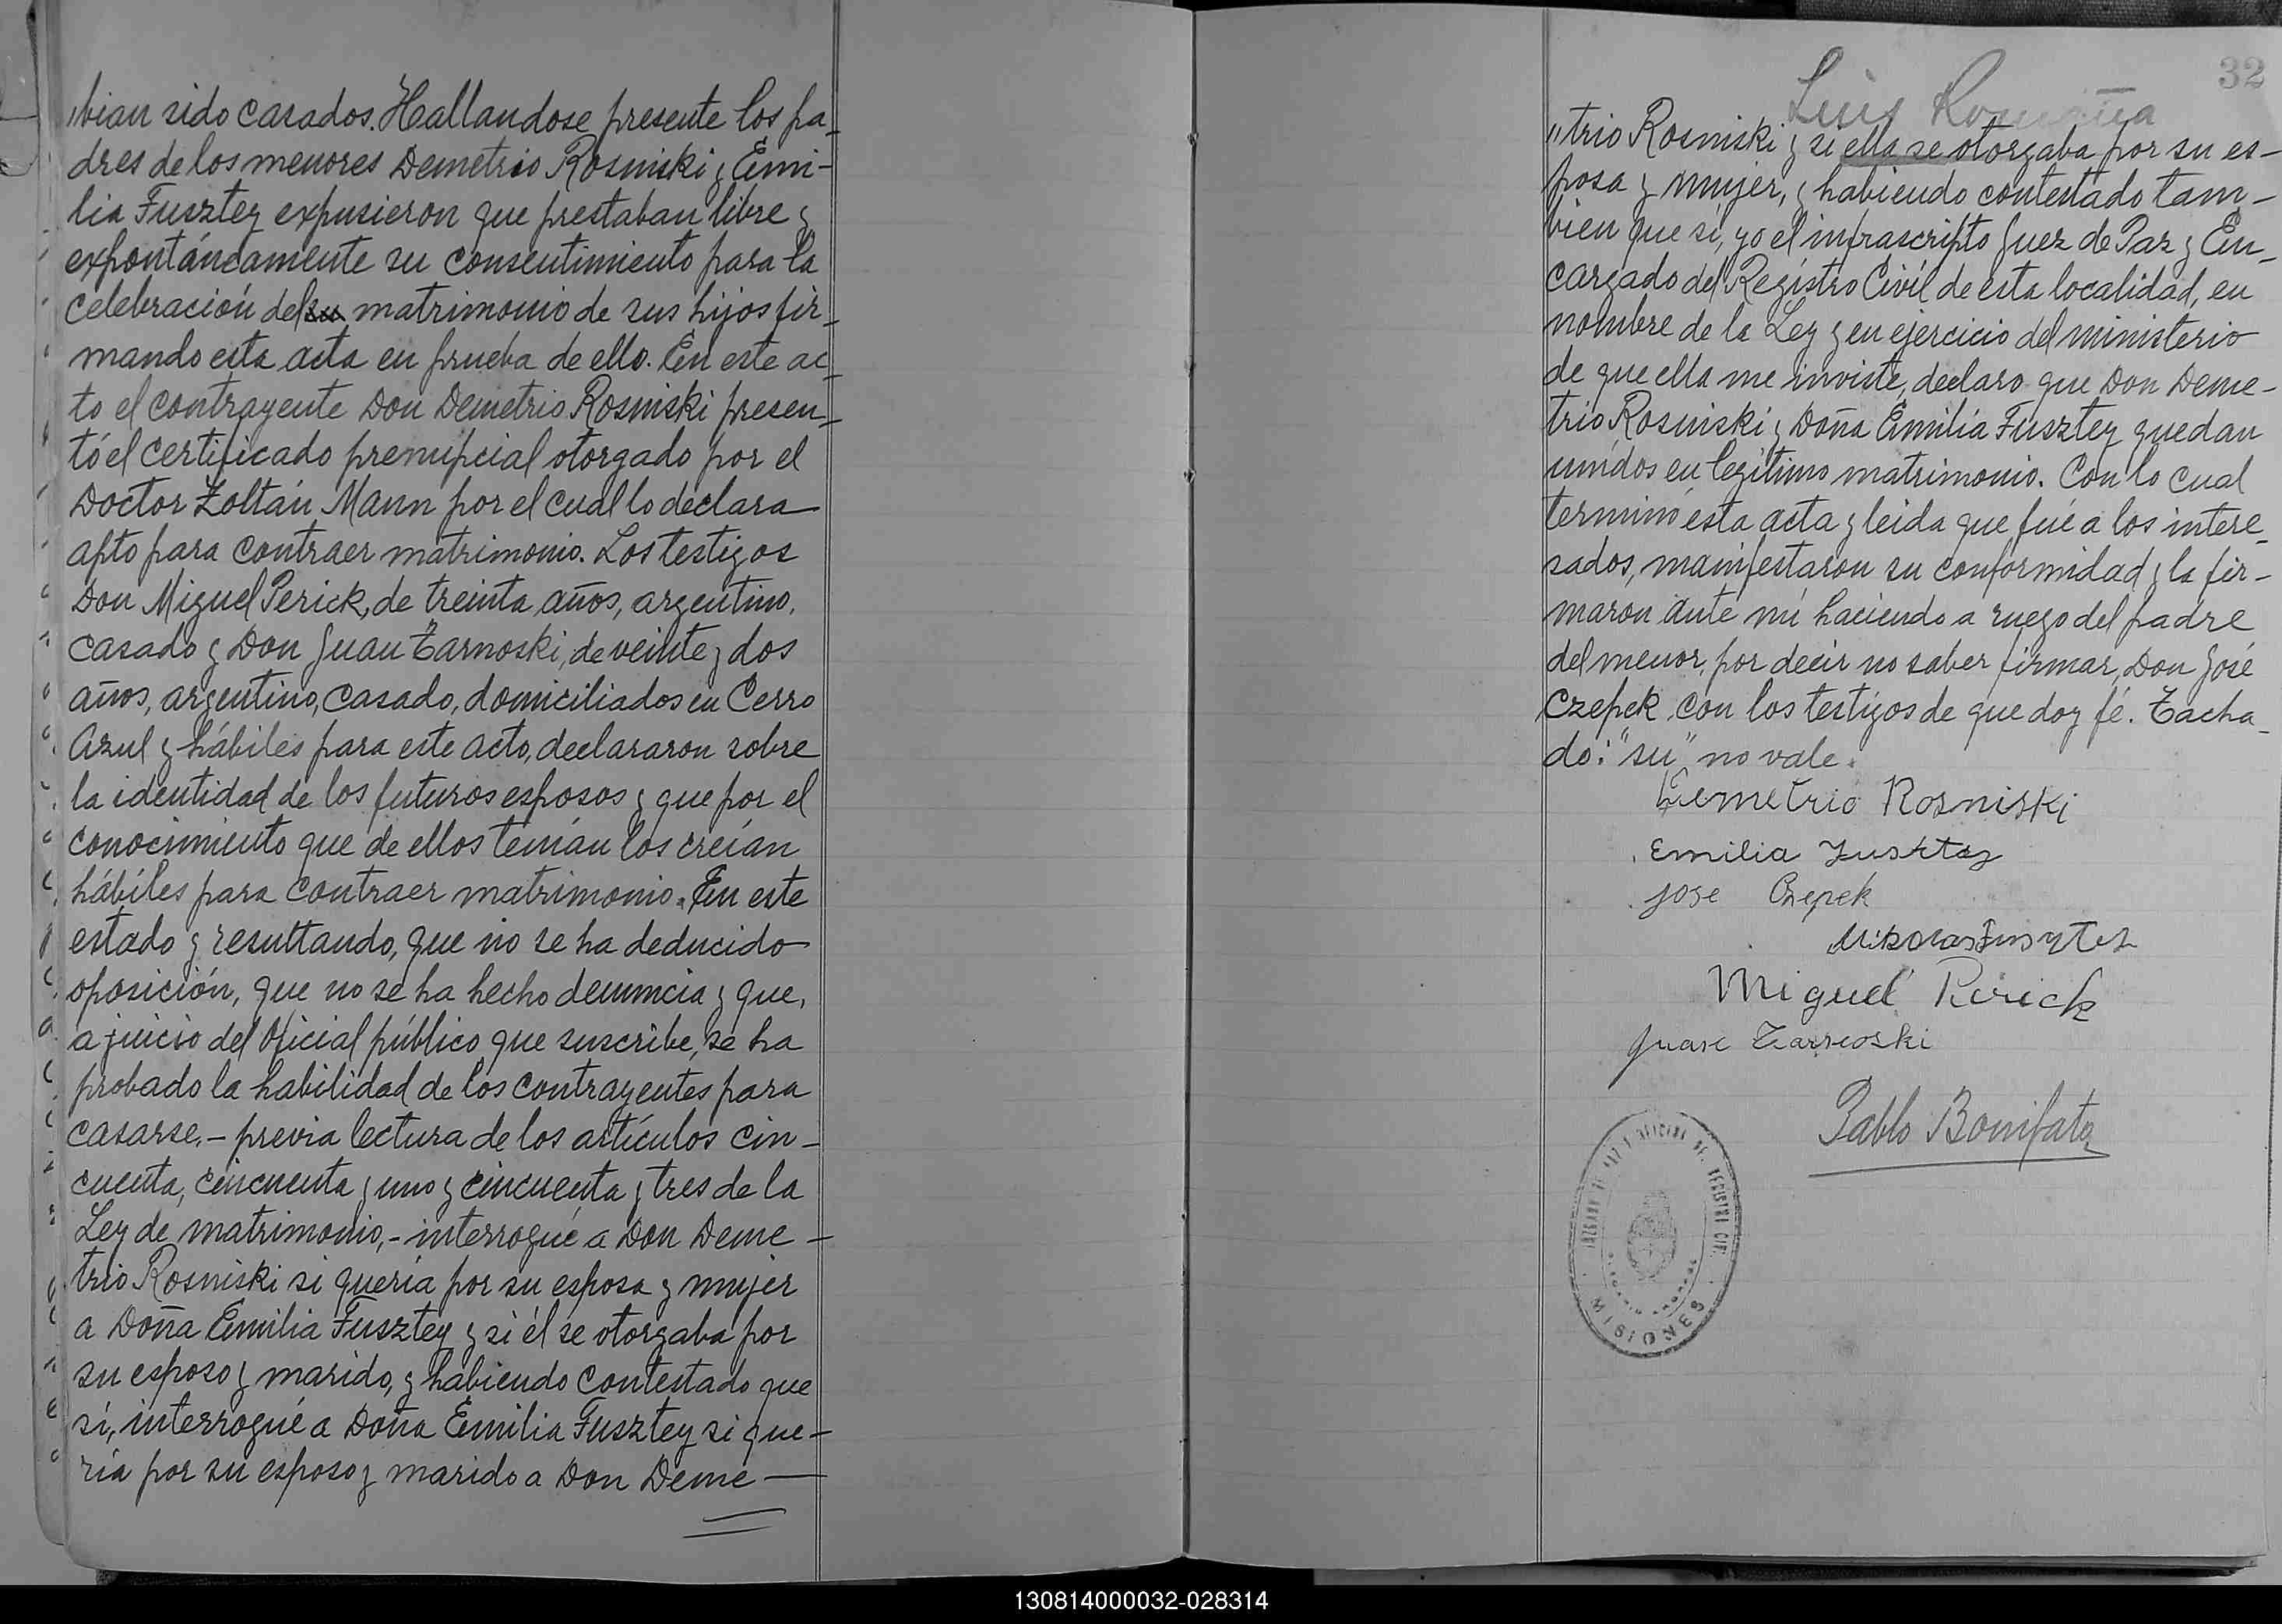 "bian sido casados. Hallandose presente los pa-
dres de los menores Demetrio Rosniski y Emi-
lia Fusztey expusieron que prestaban libre y
expontáneamente su consentimiento para la
celebración del su matrimonio de sus hijos fir-
mando esta acta en prueba de ello. En este ac-
to el contrayente Don Demetrio Rosniski presen-
tó el certificado prenupcial otorgado por el
Doctor Zoltán Mann por el cual lo declara
apto para contraer matrimonio. Los testigos
Don Miguel Perick, de treinta años, argentino,
casado y Don Juan Tarnoski, de veinte y dos
años, argentino, casado, domiciliados en Cerro
Azul y hábiles para este acto, declararon sobre
la identidad de los futuros esposos y que por el
conocimiento que de ellos tenían los creían
hábiles para contraer matrimonio. En este
estado y resultando, que no se ha deducido
oposición, que no se ha hecho denuncia y que,
a juicio del Oficial público que suscribe, se ha
probado la habilidad de los contrayentes para
casarse.- previa lectura de los artículos cin-
cuenta, cincuenta y uno y cincuenta y tres de la
Ley de matrimonio,- interrogué a Don Deme-
trio Rosniski si quería por su esposa y mujer
a Doña Emilia Fusztey y si él se otorgaba por
su esposo y marido, y habiendo contestado que
sí, interrogué a Doña Emilia Fusztey si que-
ría por su esposo y marido a Don Deme-
32
Luis
"trio Rosniski y si ella se otorgaba por su es-
posa y mujer, y habiendo contestado tam-
bien que sí, yo el infrascripto Juez de Paz y En-
cargado del Registro Civil de esta localidad, en
nombre de la Ley y en ejercicio del ministerio
de que ella me inviste, declaro que Don Deme-
trio Rosniski y Doña Emilia Fusztey quedan
unidos en legítimo matrimonio. Con lo cual
terminó esta acta y leida que fué a los intere-
sados, manifestaron su conformidad y la fir-
maron ante mí haciendo a ruego del padre
del menor, por decir no saber firmar, Don José
Czepek, con los testigos de que doy fé. Tacha-
do: "su" no vale.
Demetrio Rosniski
Emilia Fusztey
Jose Czepek
Miguel Perick
Juan Tarnoski
Pablo Bonifato
MISIONES
130814000032-028314